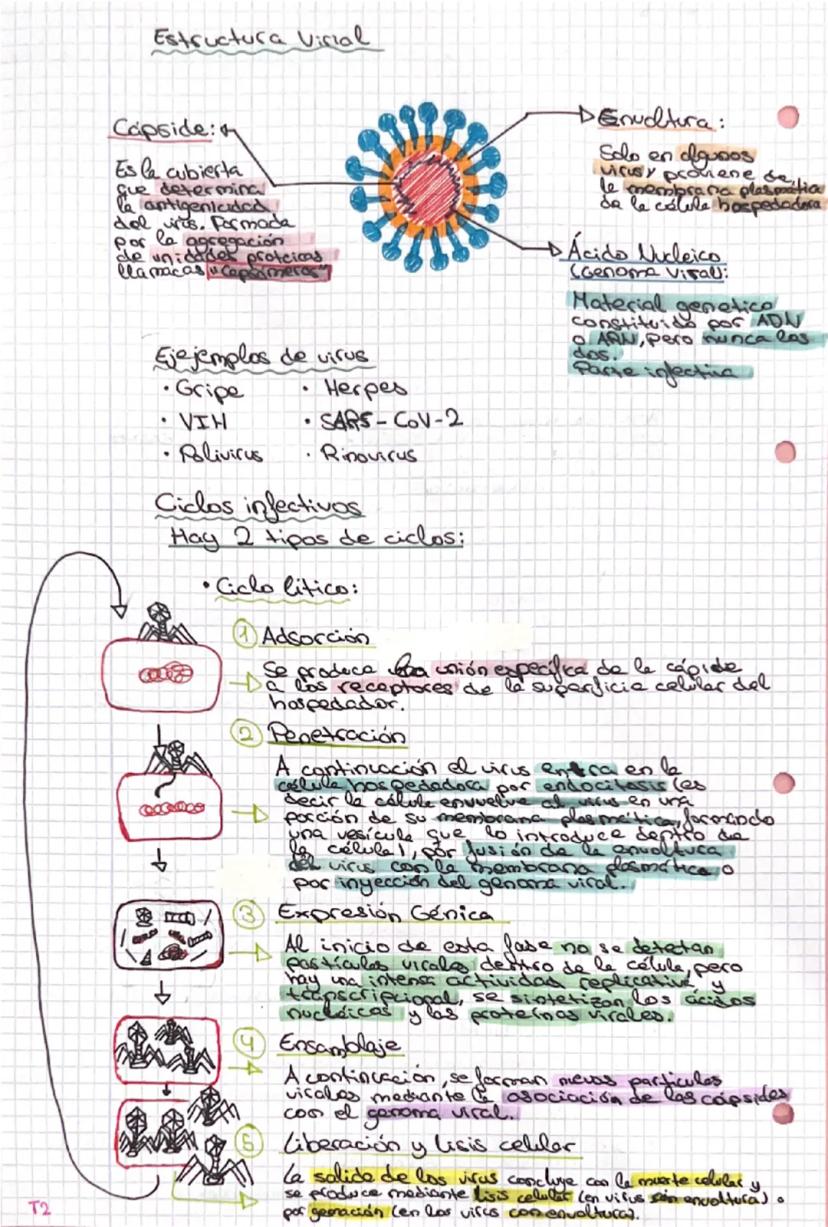 Estructura Viral
Cápside:
Es la cubierta
que determina
la antigenicidad
del virus. Formada
por la agregación
de unidades proteicas
llamadas "Capsómeros"
Envoltura:
Solo en algunos
virus y proviene de
la membrana plasmática
de la célula hospedadora
Ácido Nucleico
(Genoma Viral):
Material genetico
constituido por ADN
o ARN, pero nunca los
dos.
Parte infectiva
Ejejemplos de virus
• Gripe • Herpes
• VIH • SARS-CoV-2
• Polivirus • Rinovirus
Ciclos infectivos
Hay 2 tipos de ciclos:
• Ciclo lítico:
1 Adsorción
Se produce una unión específica de la cápide
a los receptores de la superficie celular del
hospedador.
2 Penetración
A continuación el virus entra en la
célula hospedadora por endocitosis (es
decir la célula envuelve al virus en una
porción de su membrana plasmática, formando
una vesícula que lo introduce dentro de
la célula), por fusión de la envoltura
del virus con la membrana plasmática o
por inyección del genoma viral.
3 Expresión Génica
Al inicio de esta fase no se detectan
partículas virales dentro de la célula, pero
hay una intensa actividad replicativa y
transcripcional, se sintetizan los ácidos
nucléicos y las proteínas virales.
4 Ensamblaje
A continuación, se forman nuevas partículas
virales mediante la asociación de las cápsides
con el genoma viral.
5 Liberación y lisis celular
La salida de los virus concluye con la muerte celular y
se produce mediante lisis celular (en virus sin envoltura) o
por gemación (en los virus con envoltura).
T2